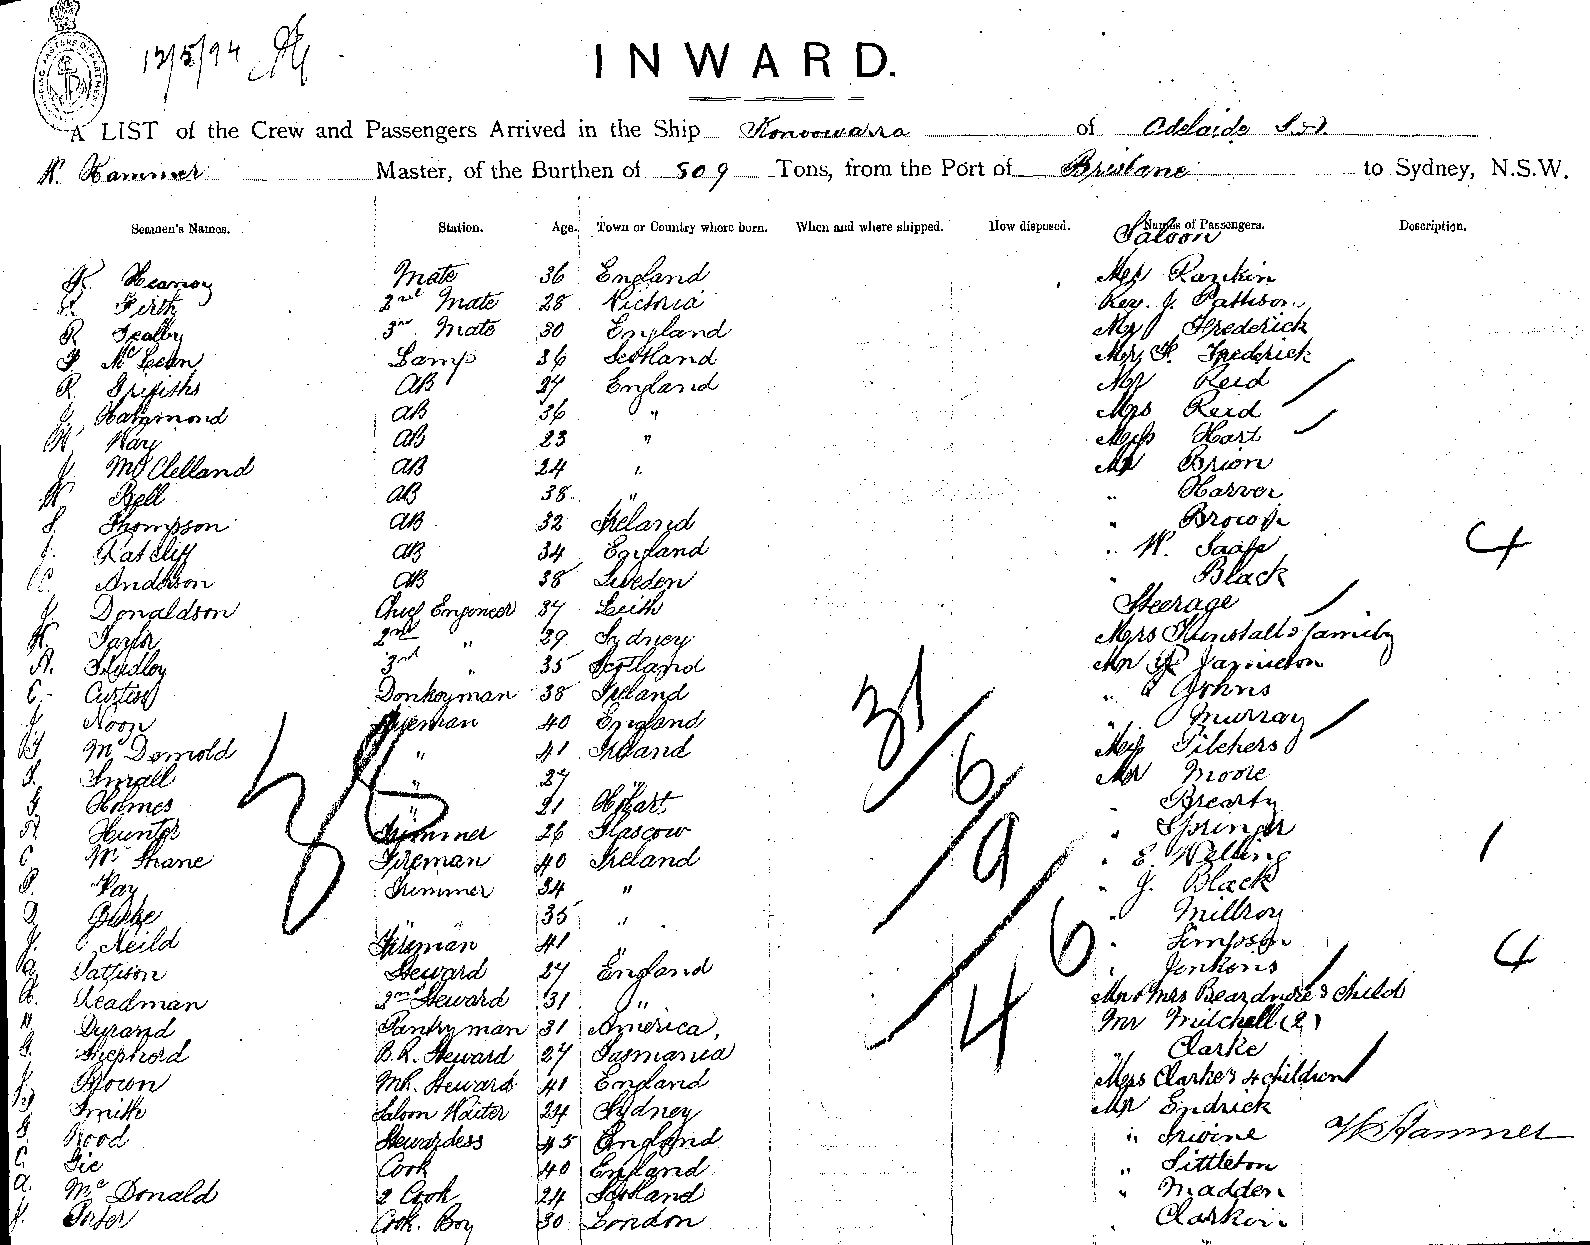 12/5/94
INWARD.
A LIST of the Crew and Passengers Arrived in the Ship Konoowarra of Adelaide
W. Hammer Master, of the Burthen of 509 Tons, from the Port of Brisbane to Sydney, N.S.W.
Seamen's Names. Station. Age. Town or Country where born. When and where shipped. How disposed. Names of Passengers. Description.
Saloon
Mate 36 England Mrs Rankin
F. Firth 2nd Mate 28 Victoria Rev. J. Pattison
R 3rd Mate 30 England Mr Frederick
McLean Lamp 36 Scotland Mrs F. Frederick
R Griffiths AB 27 England Mr Reid
Hammond AB 36 " Mrs Reid
W. AB 23 " Miss Hart
J. McClelland AB 24 " Mr Brion
W Bell AB 38 " "
J. Thompson AB 32 Ireland "
J. Ratcliff AB 34 England " W.
C. Anderson AB 38 Sweden " Black
J. Donaldson Chief Engineer 37 Leith Steerage
W. Taylor 2nd " 29 Sydney Mrs Tunstall & family
A. 3rd " 35 Scotland Mr Jamieson
C. Curtis Donkeyman 38 Ireland " Johns
J. Noon Fireman 40 England " Murray
McDonold " 41 Ireland Miss Pilchers
S. Small " 27 " Mr Moore
Holmes " 21 Hobart " Brearty
Hunter Trimmer 26 Glascow " Springer
C McShane Fireman 40 Ireland " E. Welling
P. Trimmer 34 " " J. Black
Burke " 35 " " Millroy
J. Neild Fireman 41 " " Simpson
a Pattison Steward 27 England " Jenkins
Headman 2nd Steward 31 " Mr & Mrs Beardmore & child
Durand Pantryman 31 America, Mr Mitchell (2)
Shephord B.R. Steward 27 Tasmania " Clarke
Brown Mk. Steward 41 England Mrs Clarke & 4 children
Smith Saloon Waiter 24 Sydney Mr Endrick
Wood Stewardess 45 England " Irvine
C. Cook 40 England " Littleton
a. McDonald 2 Cook 24 Scotland " Madden
J. Porter Cook. Boy 30 London "
31
6
9
6
4
4
1
4
W Hammer